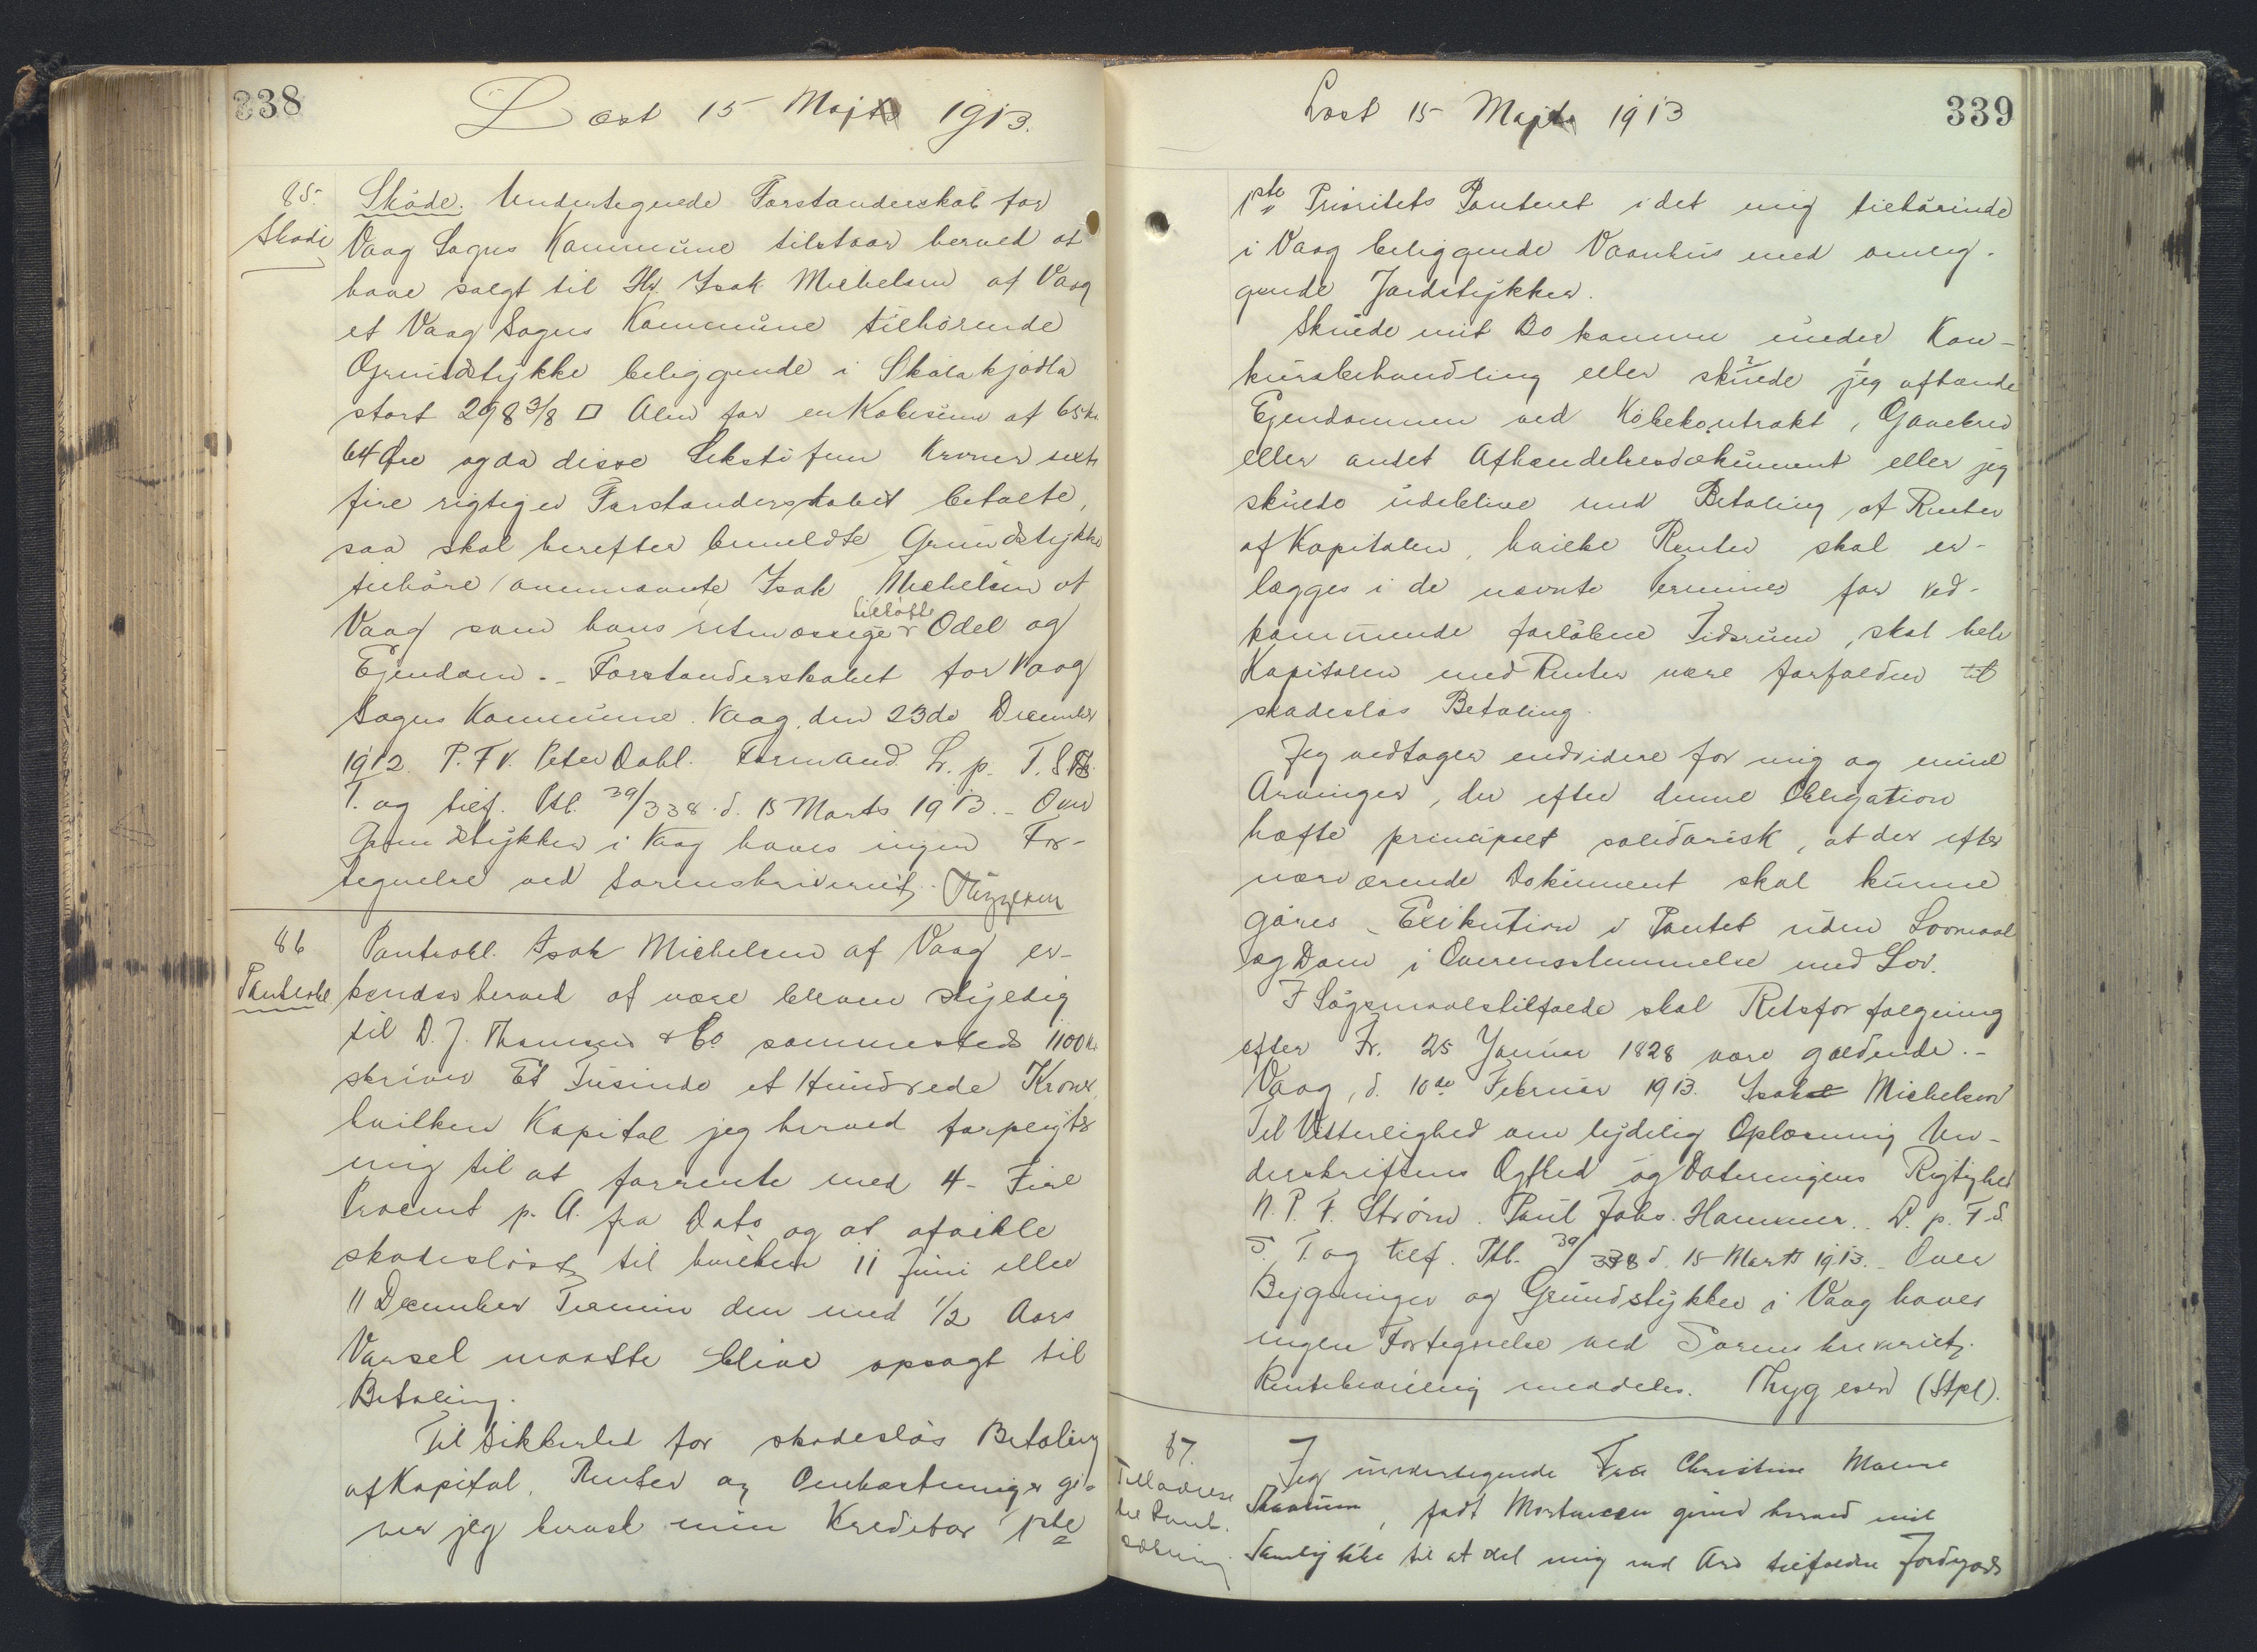 338
Læst 15 Majts 1913.
85.
Skøde
Skøde. Undertegnede Forstanderskab for
Vaag Sogns Kommune tilstaar herved at
have solgt til Hr. Isak Michelsen af Vaag
et Vaag Sogns Kommune tilhørende
Grundstykke beliggende i Skálakjødla
stort 298 3/8 □ Alen for en Købesum af 65 kr
64 Øre og da disse Sekstifem Kroner sexti
fire rigtig er Forstanderskabet betalte,
saa skal herefter bemeldte Grundstykke
tilhøre ommeanvte Isak Michelsen af
Vaag som hans retmæssige tilkøbte Odel og
Ejendom. - Forstanderskabet for Vaag
Sogns Kommune. Vaag, den 23de December
1912. P. F. V. Peter Dahl. Formand. L. p. T. S.
T. og tilf. Ptb. 39/338 d. 15 Marts 1913. - Over
Grundstykker i Vaag haves ingen For-
tegnelse ved Sorenskriveriet. Thygesen
86
Panteobl.
Panteobl. Isak Michelsen af Vaag er-
kender herved at være bleven skyldig
til D. J. Thomsen & Co sammesteds 1100 kr
skriver Et Tusinde et Hundrede Kroner,
hvilken Kapital jeg herved forpligter
mig til at forrente med 4 - Fire
Procent p. A. fra Dato og at afvikle
skadesløst til hvilken 11 Juni eller
11 December Termin den med 1/2 Aars
Varsel maatte blive opsagt til
Betaling.
Til Sikkerhed for skadesløs Betaling
af Kapital, Renter og Omkostninger gi-
ver jeg herved min Kreditor 1ste
339
Læst 15 Majts 1913
1ste Prioritets Panteret i det mig tilhørende
i Vaag beliggende Vaanhus med omlig-
gende Jordstykker.
Skulde mit Bo komme under Kon-
kursbehandling eller skulde jeg afhænde
Ejendommen ved Købekontrakt, Gavebrev
eller andet Afhændelsesdokument eller jeg
skulde udeblive med Betaling af Renter
af Kapitalen, hvilke Renter skal er-
lægges i de nævnte Terminer for ved-
kommende forløbne Tidsrum, skal hele
Kapitalen med Renter være forfalden til
skadesløs Betaling.
Jeg vedtager endvidere for mig og mine
Arvinger, der efter denne Obligation
hæfte principalt solidarisk, at der efter
nærværende Dokument skal kunne
gøres Exikution i Pantet uden Lovmaal
og Dom i Overensstemmelse med Lov.
I Søgsmaalstilfælde skal Retsforfølgning
efter Fr. 25 Januar 1828 være gældende. -
Vaag, d. 10de Februar 1913. Isak Michelsen
Til Vitterlighed om tydelig Oplæsning Un-
derskriftens Ægthed og Dateringens Rigtighed
N. P. F. Strøm. Poul Johs. Hammer. L. p. T. S.
T. og tilf. Ptb. 39/338 d. 15 Marts 1913. - Over
Bygninger og Grundstykker i Vaag haves
ingen Fortegnelse ved Sorenskriveriet.
Rentebevilling meddeles. Thygesen (Stpl).
87.
Tilladelse
til Pant-
sætning
Jeg undertegnede Fru Christine Marie
født Mortensen giver herved mit
Samtykke til at det mig ved Arv tilfaldne Jordgods